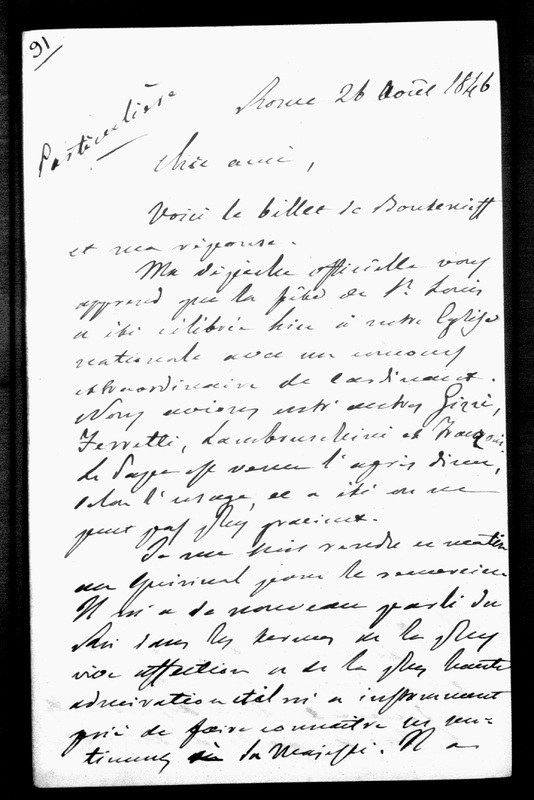 91
Particulière
Rome 26 Août 1846
Cher ami,
Voici le billet de Bouteneff
et ma réponse.
Ma dépêche officielle vous
apprend que la fête de St. Louis
a été célébrée hier à notre Eglise
nationale avec un concours
extraordinaire de Cardinaux.
Nous avions entr'autres Gizzi,
Ferretti, Lambruschini et Franzoni.
Le Pape est venu l'après dîner,
selon l'usage, et a été on ne
peut pas plus gracieux.
Je me suis rendu ce matin
au Quirinal pour le remercier
Il m'a de nouveau parlé du
Roi dans les termes de la plus
vive affection et de la plus haute
admiration et il m'a instamment
prié de faire connaître ses sen-
timens à Sa Majesté. Il a